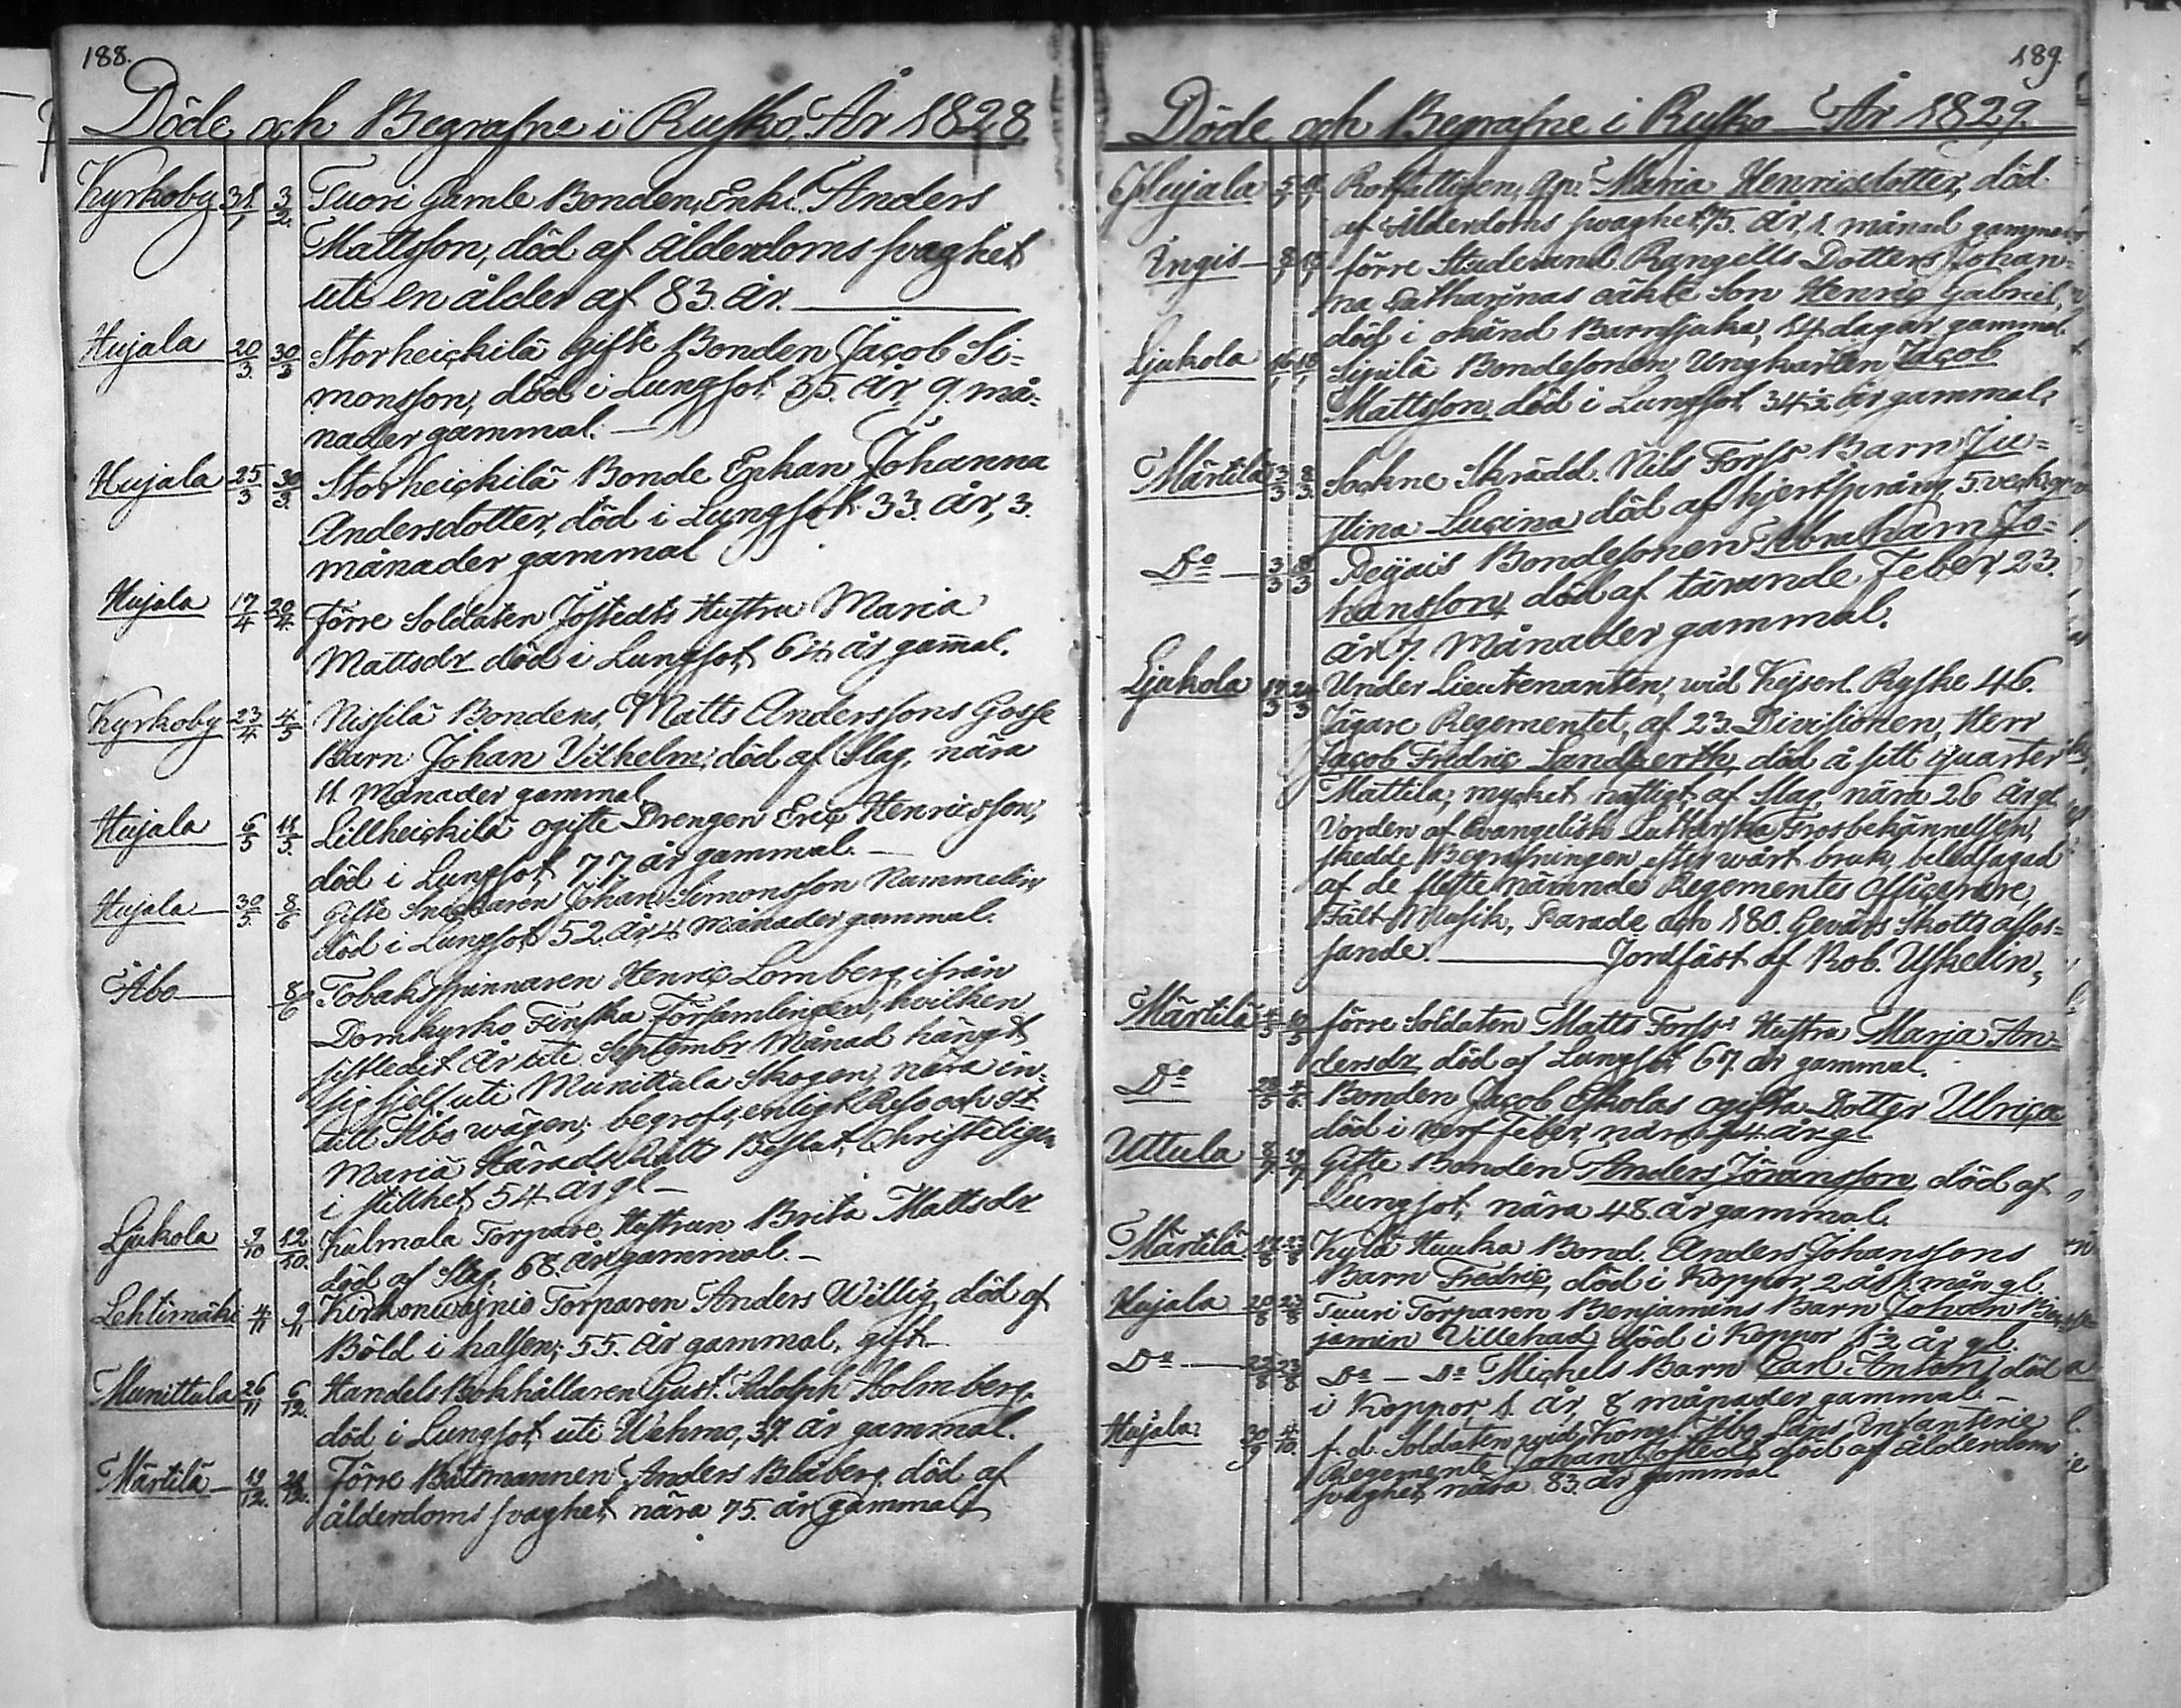 188.
Döde och Begrafne i Rusko År 1828
Kyrkoby 31/1 3/2. Tuori Gamle Bonden, Enkl. Anders
Mattsson, död af ålderdoms svaghet
uti en ålder af 83. år.
Hujala 20/3. 30/3 Storheickilä Gifte Bonden Jacob Si-
monsson, död i Lungsot 35. år 9 må-
nader gammal.
Hujala 25/3 30/3. Storheickilä Bonde Enkan Johanna
Andersdotter, död i Lungsot 33. år, 3.
månader gammal
Hujala 17/4 20/4. förre Soldaten Jöstedts Hustru Maria
Mattsdr död i Lungsot, 64 år gam̄al.
Kyrkoby 23/4 4/5 Nissilä Bondens, Matts Anderssons Gosse
Barn Johan Vilhelm, död af Slag, nära
11. Månader gammal
Hujala 6/5 11/5. Lillheickilä ogifte Drengen Eric Henricsson,
död i Lungsot, 77 år gammal.
Hujala 30/5. 8/6 Gifte Snickaren Johan Simonsson Nummelin,
död i Lungsot 52 år, 4 Månader gammal.
Åbo 8/6 Tobaksspinnaren Henric Lomberg, ifrån
Domkyrko Finska Församlingen, hvilken
sistledit År uti Septembr Månad hängt
sig sjelf uti Munittula Skogen, nära in-
till Åbo wägen; begrofs, enligt Reso och St
Mariä Härads Rätts Beslut, Christeligen
i stillhet, 54 år gl
Ljukola 9/10 12/10. Kulmala Torpare Hustrun Brita Mattsdr
död af Slag, 68. år gammal.
Lehtimäki 4/11 9/11 Torparen Anders Willig, död af
Böld i halsen, 55. år gammal, gift
Munittula 26/11 6/12. Handels Bokhållaren Gust. Adolph Holmberg.
död i Lungsot, uti Wehmo, 37. år gammal.
Märtilä 19/12. Förre Båtsmannen Anders Blåberg, död af
ålderdoms svaghet, nära 75. år gammal
189.
Döde och Begrafne i Rusko År 1829.
Hujala Rotfattigen, Maria Henricsdotter, död
af ålderdoms svaghet, 75. år, 1. månad gammal
Ängis förre Studerand. Rangells Dotters Johan-
na Catharinas oäkte Son Henric Gabriel,
död i okänd Barnsjuka, 14 dagar gammal.
Ljukola Sipilä Bondesonen Ungkarlen Jacob
Mattsson, död i Lungsot, 34½ år gammal.
Märtilä 3/3 8/3. Sockne Skrädd. Nils Forss Barn Ju-
stina Lucina död af hjertsprång, 5. veck.
Do 3/3 8/3 Reijais Bondesonen Abraham Jo-
hansson, död af tärande Feber, 23.
år 7. Månader gammal.
Ljukola Under Lieutenanten, wid Kejserl. Ryske 46.
Jägare Regementet, af 23. Divisionen, Herr
Jacob Fredric Landperth, död å sitt quarter
Mattila, mycket hastigt, af Slag, nära 26 år gl.
Vorden af Evangelisk Lutherska Trosbekännelsen,
skedde Begrafningen efter wårt bruk, beledsagad
af de flesta närvande Regementes Officerare,
Fält Musik, Parade och 180. Gevärs Skotts aflos-
sande. Jordfäst af Rob. Uskelin,
Märtilä förre Soldaten Matts Forss's Hustru Maria An-
dersdr, död af Lungsot, 67. år gammal.
Do Bonden Jacob Eskolas ogifta Dotter Ulrica
död i nerf feber, nära 24. år gl
Uttula Gifte Bonden Anders Jöransson, död af
Lungsot, nära 48. år gammal.
Märtilä Kylä Huuka Bond. Anders Johanssons
Barn Fredric, död i Koppor, 2 år 1 mån gl.
Hujala 20/8 23/8 Tuuri Torparen Benjamins Barn Johan Ben-
jamin Villehad, död i Koppor 1½ år gl.
Do 22/8 23/8 Do Do Michels Barn Carl Anton, död
i Koppor, 1. år 8 månader gammal.
Hujala. 30/9 4/10. f.d. Soldaten wid Kongl. Åbo Läns Infanterie
Regemente Johan Jöstedt, död af ålderdoms
svaghet, nära 83. år gammal